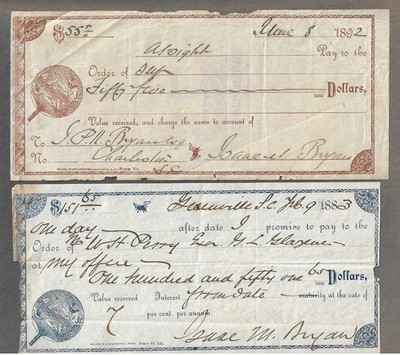 $55.00 June 8 1892
At sight Pay to the
Order of self
Fifty five 100 Dollars,
Value received, and charge the same to account of
To J.P.K. Bryan Esq
No. Charleston S.C. Isaac M Bryan
$151 65 Greenville S.C. Feb. 9 1883
one day after date I promise to pay to the
Order of W. H. Perry
at my office
One hundred and fifty one 65 100 Dollars,
Value received Interest from date maturity at the rate of
7 per cent. per annum.
Isaac M. Bryan